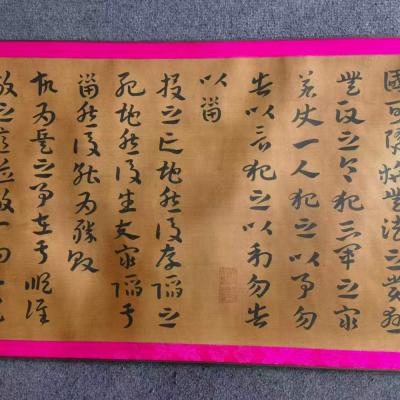 國可隳施無法之賞懸
無政之令犯三軍之眾
若使一人犯之以事勿
告以言犯之以利勿告
以害
投之亡地然後存陷之
死地然後生夫眾陷于
害然後能為勝敗
故為兵之事在于順詳
敵之意並敵一向